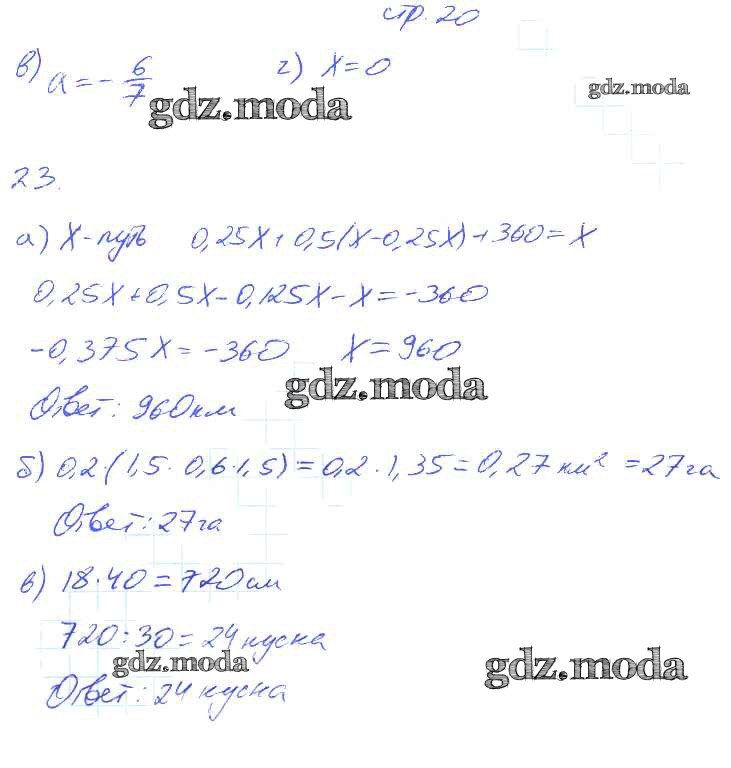 стр. 20
в) a = - 6/7 г) x = 0
gdz.moda
gdz.moda
23.
а) x - путь 0,25x + 0,5(x - 0,25x) + 360 = x
0,25x + 0,5x - 0,125x - x = -360
-0,375x = -360 x = 960
gdz.moda
Ответ: 960 км
б) 0,2 · (1,5 · 0,6 · 1,5) = 0,2 · 1,35 = 0,27 км² = 27 га
Ответ: 27 га
в) 18 · 40 = 720 см
720 : 30 = 24 куска
gdz.moda
gdz.moda
Ответ: 24 куска